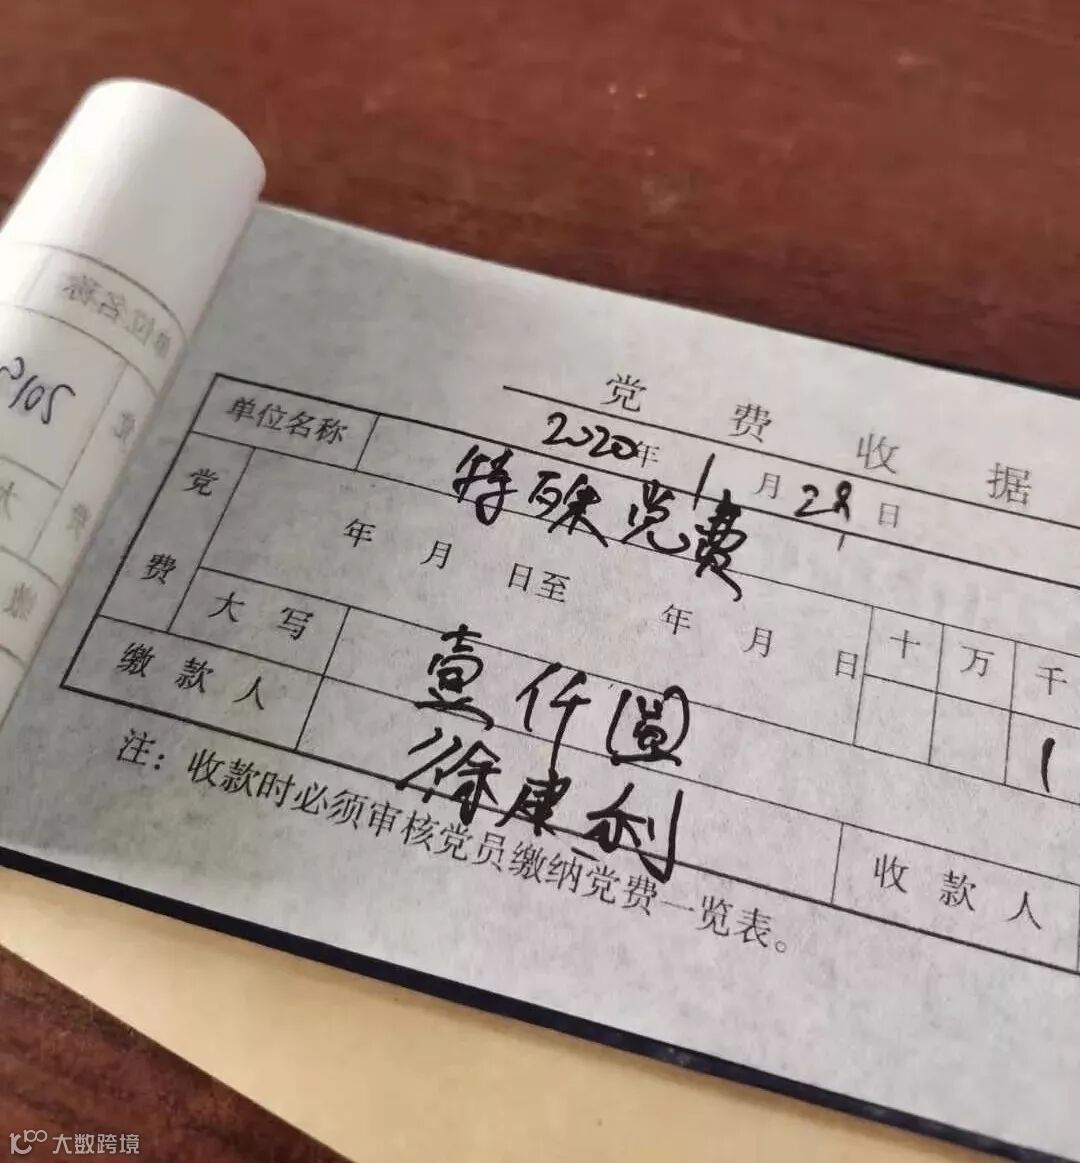 党费收据
2020年1月28日
单位名称
特殊党费
党费
年 月 日至 年 月 日
十 万 千
1
大写
壹仟圆
缴款人
徐建利
收款人
注：收款时必须审核党员缴纳党费一览表。
单位名称
大数跨境